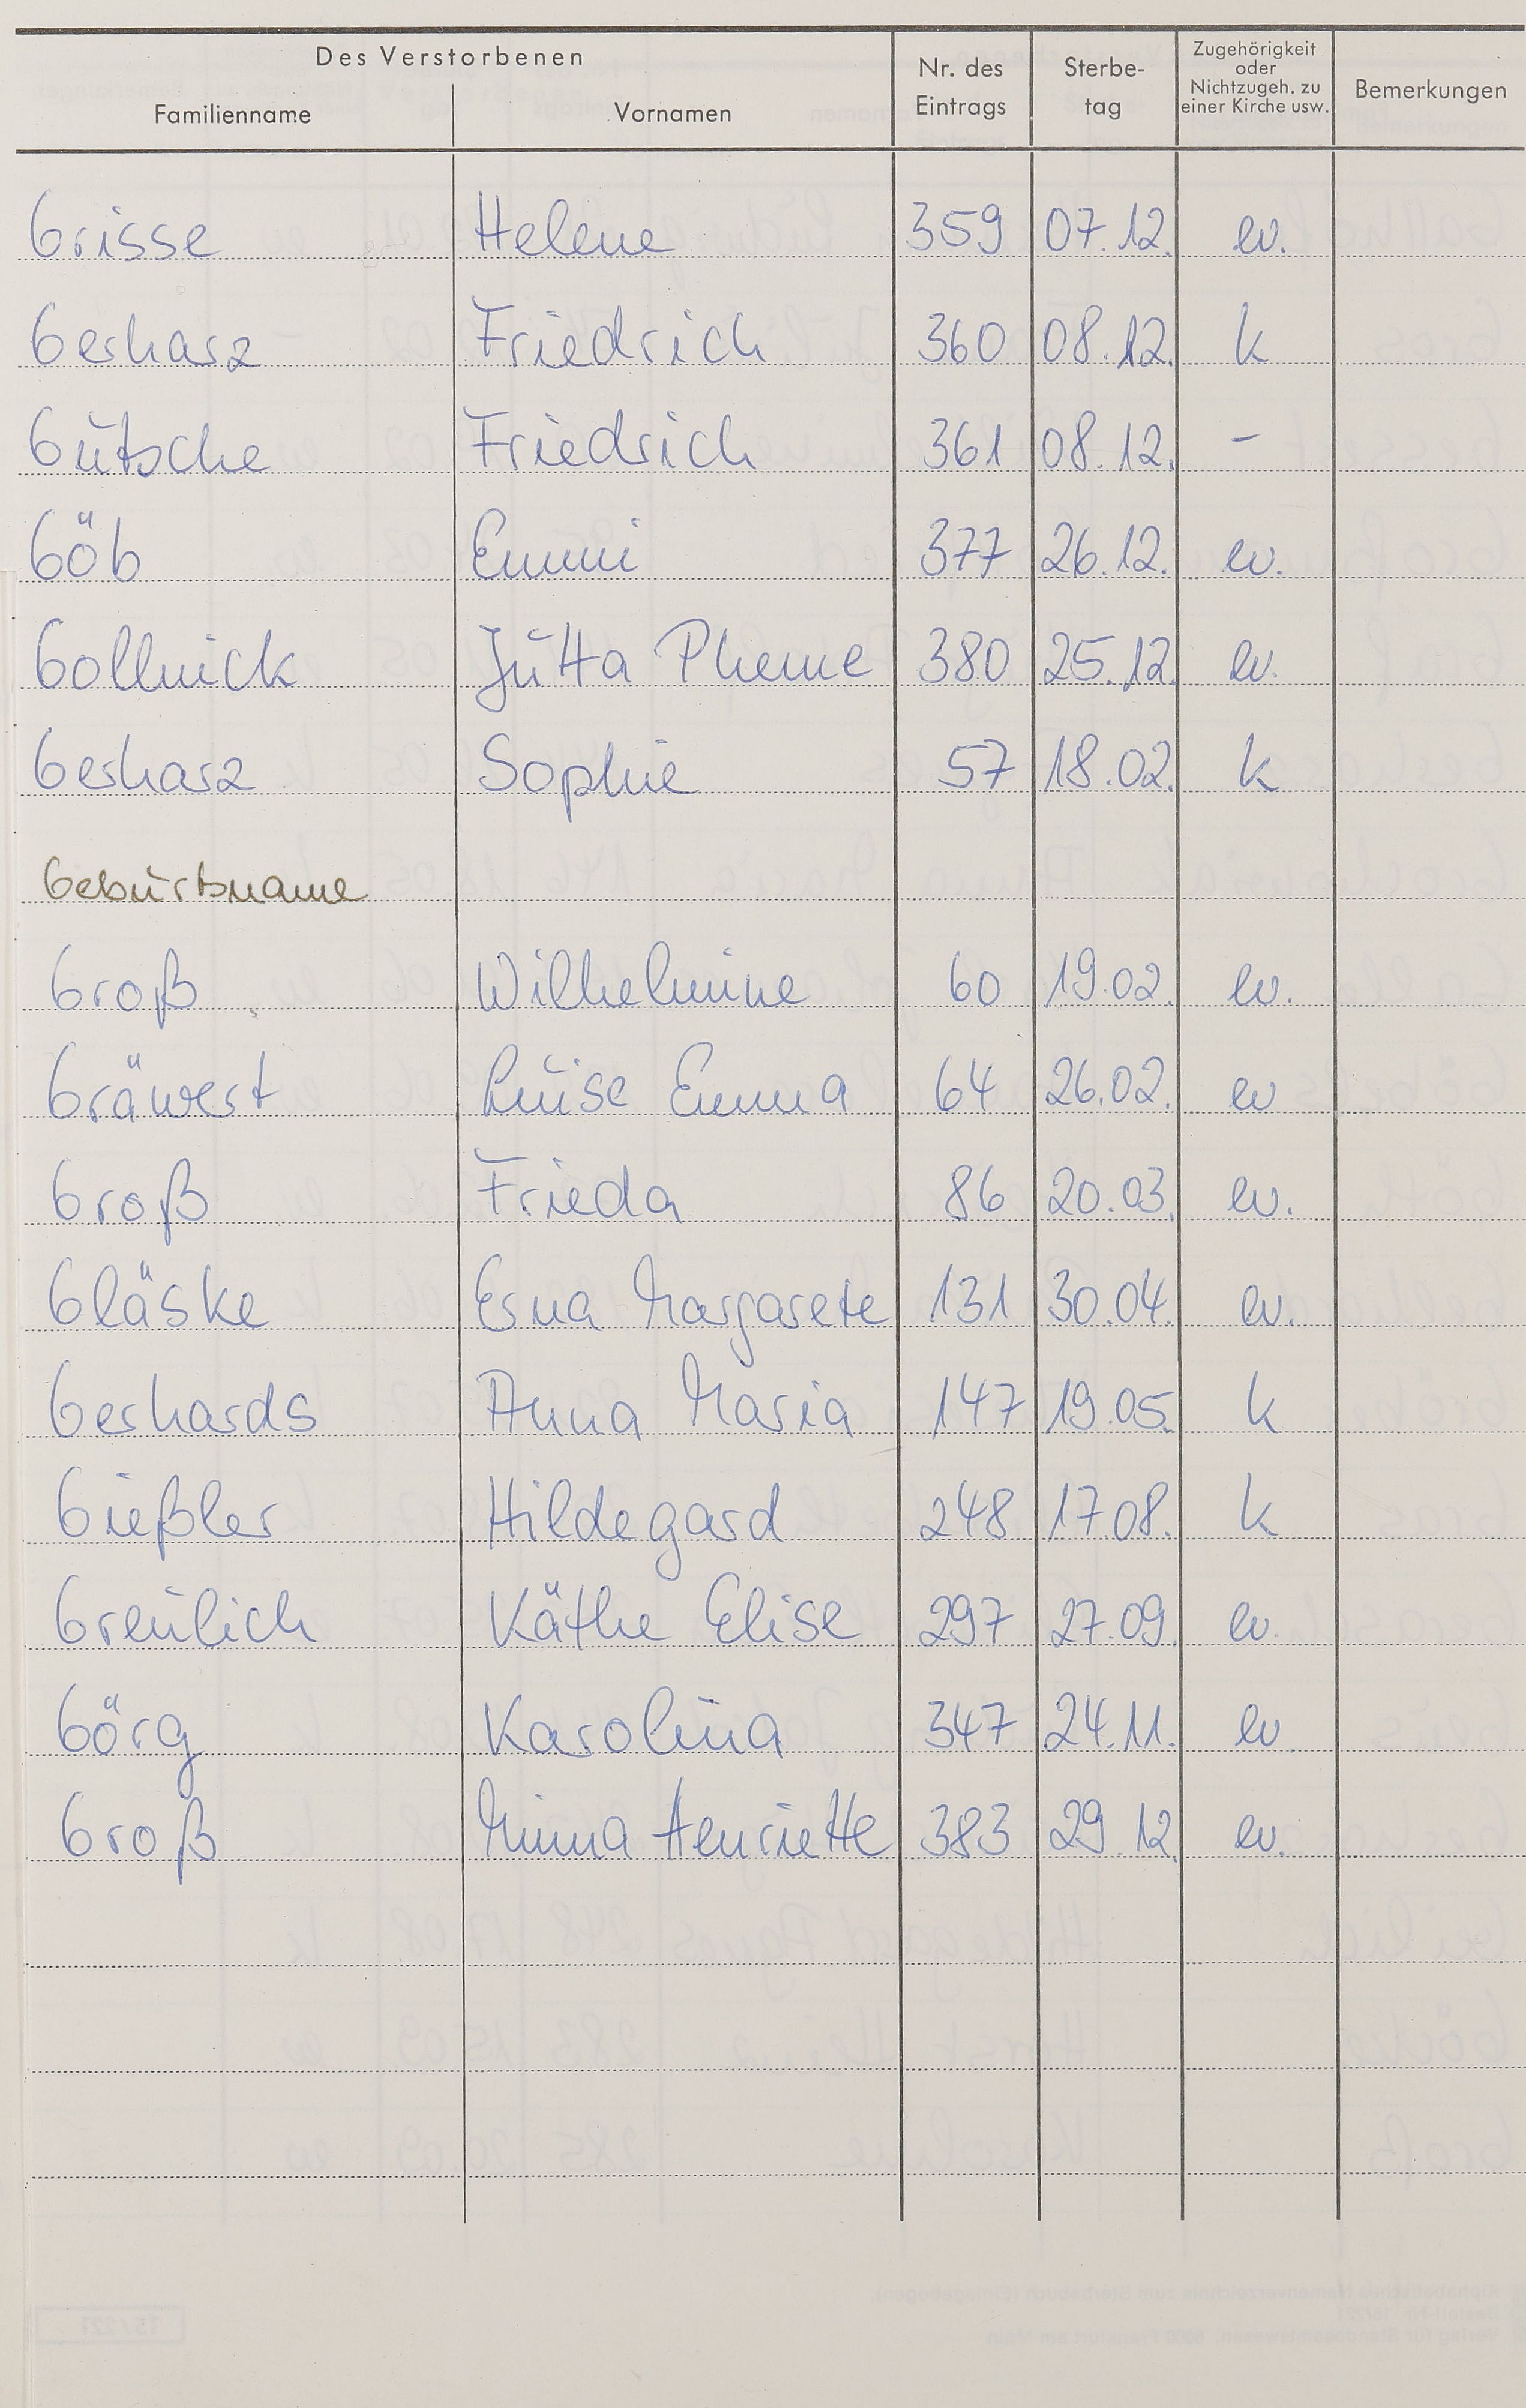 Des Verstorbenen
Familienname Vornamen Nr. des Eintrags Sterbe-tag Zugehörigkeit oder Nichtzugeh. zu einer Kirche usw. Bemerkungen
Grisse Helene 359 07.12. ev.
Gerharz Friedrich 360 08.12. k
Gutsche Friedrich 361 08.12. -
Göb Emmi 377 26.12. ev.
Gollnick Jutta Pheme 380 25.12. ev.
Gerharz Sophie 57 18.02. k
Geburtsname
Groß Wilhelmine 60 19.02. ev.
Gräwert Luise Emma 64 26.02. ev
Groß Frieda 86 20.03. ev.
Gläske Erna Margarete 131 30.04. ev.
Gerhards Anna Maria 147 19.05. k
Gießler Hildegard 248 17.08. k
Greulich Käthe Elise 297 27.09. ev.
Görg Karolina 347 24.11. ev
Groß Minna Henriette 383 29.12. ev.